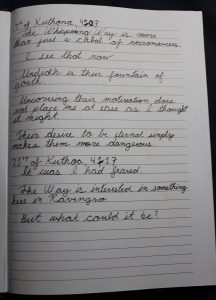 7th of Kuthona, 4207
The Whispering Way is more
than just a cabal of necromancers.
I see that now
Undeath is their fountain of
youth.
Uncovering their motivation does
not place me at ease as I thought
it might.
Their desire to be eternal simply
makes them more dangerous.
21st of Kuthona, 4217
It was I had feared.
The Way is interested in something
here in Ravengro
But what could it be?